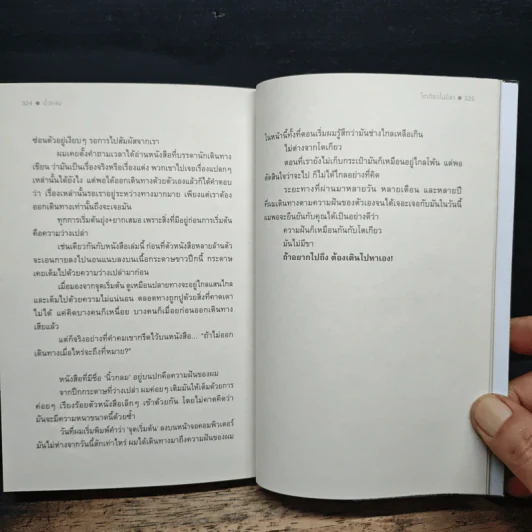 324 ● นิ้วกลม
ซ่อนตัวอยู่เงียบๆ รอการไปสัมผัสจากเรา
ผมเคยตั้งคำถามเวลาได้อ่านหนังสือที่บรรดานักเดินทาง
เขียน ว่ามันเป็นเรื่องจริงหรือเรื่องแต่ง พวกเขาไปเจอเรื่องแปลกๆ
เหล่านั้นได้ยังไง แต่พอได้ออกเดินทางด้วยตัวเองแล้วก็ได้คำตอบ
ว่า เรื่องเหล่านั้นรอเราอยู่ระหว่างทางมากมาย เพียงแต่เราต้อง
ออกเดินทางเท่านั้นถึงจะเจอมัน
ทุกการเริ่มต้นยุ่ง+ยากเสมอ เพราะสิ่งที่มีอยู่ก่อนการเริ่มต้น
คือความว่างเปล่า
เช่นเดียวกันกับหนังสือเล่มนี้ ก่อนที่ตัวหนังสือหลายล้านตัว
จะเอนกายลงไปนอนแนบลงบนเนื้อกระดาษขาวปึกนี้ กระดาษ
เคยเต็มไปด้วยความว่างเปล่ามาก่อน
เมื่อมองจากจุดเริ่มต้น ดูเหมือนปลายทางจะอยู่ไกลแสนไกล
และเต็มไปด้วยความไม่แน่นอน ตลอดทางถูกปูด้วยสิ่งที่คาดเดา
ไม่ได้ แค่คิดบางคนก็เหนื่อย บางคนก็เมื่อยก่อนออกเดินทาง
เสียแล้ว
แต่ก็จริงอย่างที่คำคมเขากรีดไว้บนหนังสือ... "ถ้าไม่ออก
เดินทางเมื่อไหร่จะถึงที่หมาย?"
หนังสือที่มีชื่อ 'นิ้วกลม' อยู่บนปกคือความฝันของผม
จากปึกกระดาษที่ว่างเปล่า ผมค่อยๆ เติมมันให้เต็มด้วยการ
ค่อยๆ เรียงร้อยตัวหนังสือเล็กๆ เข้าด้วยกัน โดยไม่คาดคิดว่า
มันจะมีความหนาขนาดนี้ด้วยซ้ำ
วันที่ผมเริ่มพิมพ์คำว่า 'จุดเริ่มต้น' ลงบนหน้าจอคอมพิวเตอร์
มันไม่ต่างจากวันนี้สักเท่าไหร่ ผมได้เดินทางมาถึงความฝันของผม
โตเกียวไม่มีขา ● 325
ในหน้านี้ทั้งที่ตอนเริ่มผมรู้สึกว่ามันช่างไกลเหลือเกิน
ไม่ต่างจากโตเกียว
ตอนที่เรายังไม่เก็บกระเป๋ามันก็เหมือนอยู่ไกลโพ้น แต่พอ
ตัดสินใจว่าจะไป ก็ไม่ได้ไกลอย่างที่คิด
ระยะทางที่ผ่านมาหลายวัน หลายเดือน และหลายปี
ที่ผมเดินทางตามความฝันของตัวเองจนได้เจอะเจอกับมันในวันนี้
ผมพอจะยืนยันกับคุณได้เป็นอย่างดีว่า
ความฝันก็เหมือนกันกับโตเกียว
มันไม่มีขา
ถ้าอยากไปถึง ต้องเดินไปหาเอง!